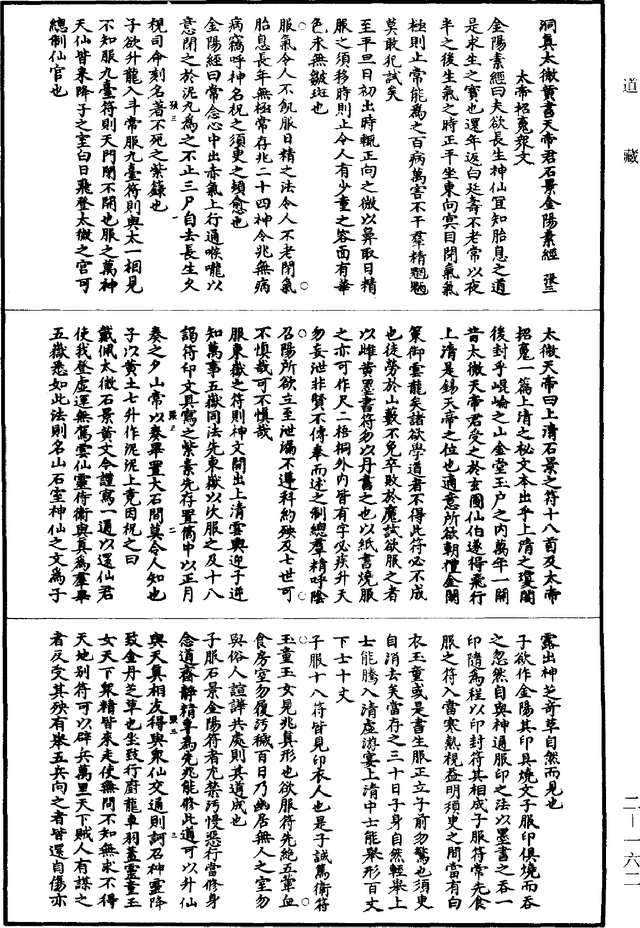 道藏
洞真太微黃書天帝君石景金陽素經 張三
太帝招䰟眾文
金陽素經曰夫欲長生神仙宜知胎息之道
是求生之寶也還年返白延壽不老常以夜
半之後生氣之時正平坐東向㝠目閉氣氣
極則止常能為之百病萬害不干羣精魍魎
莫敢犯試矣
至平旦日初出時輒正向之微以鼻取日精
服之須移時則止令人有少童之容面有華
色永無皺斑也
服氣令人不飢服日精之法令人不老閉氣
胎息長年無極常存兆二十四神令兆無病
病竊呼神名祝之須更之頓愈也
金陽經曰常念心中出赤氣上行通喉嚨以
意閉之於泥丸為之不止三尸自去長生久
視司命刻名著不死之紫籙也
子欲升龍入斗常服九臺符則與太一相見
不知服九臺符則天門閉不開也服之萬神
天仙皆來降子之室白日飛登太微之官可
總制仙官也
太微天帝曰上清石景之符十八首及太帝
招䰟一篇上清之秘文本出乎上清之瓊闕
後封乎崐崘之山金堂玉戶之內萬年一開
昔太微天帝君受之於玄圃仙伯遂得飛行
上清是錫天帝之位也適意所欲朝禮金闕
策御雲龍矣諸欲學道者不得此符必不成
也徒勞於山藪不免卒敗於魔試欲服之者
以雌黃墨書符勿以丹書之也以紙書燒服
之亦可作尺二梧桐外內皆有字必疾升天
勿妄泄非賢不傳奉而述之制總羣精呼陰
召陽所欲立至泄漏不遵科約殃及七世可
不慎哉可不慎哉
服東嶽之符則神文開出上清雲輿迎子逆
知萬事五嶽同法先東嶽以次服之及十八
謁符印文具寫之紫素先存置筒中以正月
奏之夕山常以奏畢置大石間莫令人知也
子以黃土七升作泥泥上竟因祝之曰
戴佩太微石景黃文今謹寫一通以還仙君
使我登虛運無駕雲仙靈侍衛與真為羣畢
五嶽悉如此法則名山石室神仙之文為子
露出神芝奇草自然而見也
子欲作金陽其印具燒文子服印俱燒而吞
之忽然自與神通服印之法以墨書之吞一
印隨為程以印封符其相成子服符常先食
服之符入當寒熱視益明須更之間當有白
衣玉童或是書生服正立子前勿驚也須更
自消去矣當存之三十日子身自然輕舉上
士能騰入清虛游宴上清中士能舉形百丈
下士十丈
子服十八符皆見印衣人也是子誠篤衛符
玉童玉女見兆真形也欲服符先絕五葷血
食房室勿履污穢百日乃幽居無人之室勿
與俗人諠譁共處則其道成也
子服石景金陽符者尤禁污慢惡行當修身
念道齋靜精專為先兆能修此道可以升仙
與天真相友得與眾仙交通則訶召神靈降
致金丹芝草也坐致行廚龍車羽蓋靈童玉
女天下眾精皆來走使無問不知無求不得
天地別符可以辟兵萬里天下賊人有謀之
者反受其殃有舉五兵向之者皆還自傷亦
二—一六二